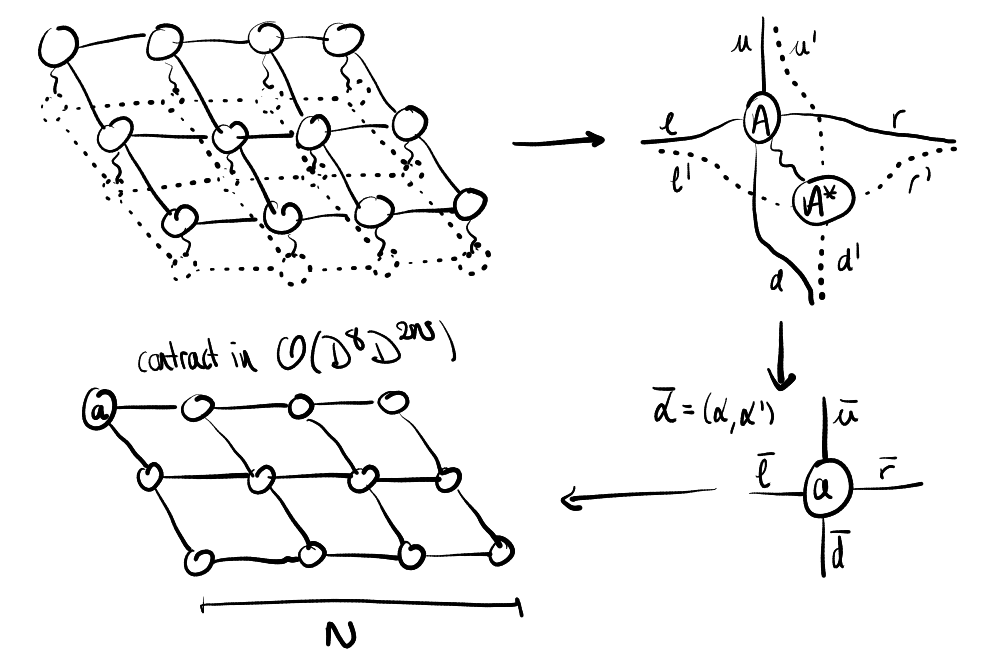 u u'
l A r
l' A* r'
d d'
contract in O(D⁸D²ᴺ)
ᾱ = (α, α')
ū
a l̄ a r̄
d̄
N